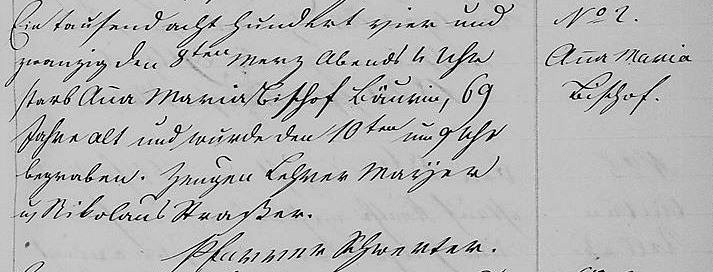 Ein tausend acht hundert vier und
zwanzig den 8ten Merz Abends 4 Uhr
starb Anna Maria Bischof Bäurin, 69
Jahre alt und wurde den 10ten um 9 Uhr
begraben. Zeugen Lehrer Mayer
u Nikolaus Straßer.
Pfarrer Schwerter.
No 2.
Aña Maria
Bischof.